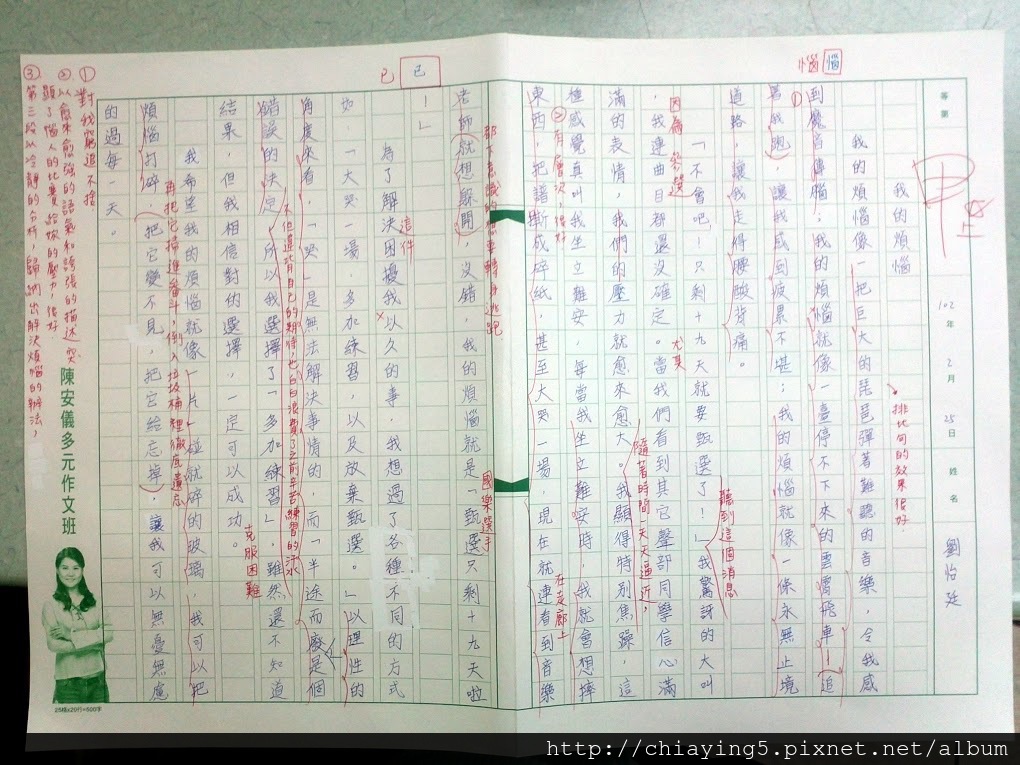 等第
甲上
102年2月25日
姓名
劉怡廷
我的煩惱
我的煩惱像一把巨大的琵琶彈著難聽的音樂，令我感
到魔音傳腦；我的煩惱就像一臺停不下來的雲霄飛車！追
著我跑，讓我感到疲累不堪；我的煩惱就像一條永無止境
道路，讓我走得腰酸背痛。
「不會吧！只剩十九天就要甄選了！」我驚訝的大叫
，我連曲目都還沒確定。當我們看到其它聲部同學信心滿
滿的表情，我們的壓力就愈來愈大。我顯得特別焦躁，這
種感覺真叫我坐立難安，每當我坐立難安時，我就會想摔
東西，把譜撕成碎紙，甚至大哭一場，現在就連看到音樂
老師就想躲開，沒錯，我的煩惱就是「甄選只剩十九天啦
！」
為了解決困擾我以久的事，我想過了各種不同的方式
如：「大哭一場、多加練習，以及放棄甄選。」以理性的
角度來看，「哭」是無法解決事情的，而「半途而廢是個
錯誤的決定，所以我選擇了「多加練習」，雖然還不知道
結果，但我相信對的選擇，一定可以成功。
我希望我的煩惱就像一片一碰就碎的玻璃，我可以把
煩惱打碎，把它變不見，把它給忘掉，讓我可以無憂無慮
的過每一天。
惱
惱
排比句的效果很好
①
聽到這個消息
因為參選
尤其
隨著時間一天天逼近，
②有層次，很好
在走廊上
轉身逃跑
國樂選手
已
已
這件
不但違背自己的期待，也白白浪費了之前辛苦練習的汗水
克服困難
再把它掃進畚斗，倒入垃圾桶裡徹底遺忘
①對我窮追不捨
②以愈來愈強的語氣和誇張的描述，突
顯了個人的比賽給妳的壓力，很好
③第三段以冷靜的分析，歸納出解決煩惱的辦法，
陳安儀多元作文班
25格x20行=500字
http://chiaying5.pixnet.net/album